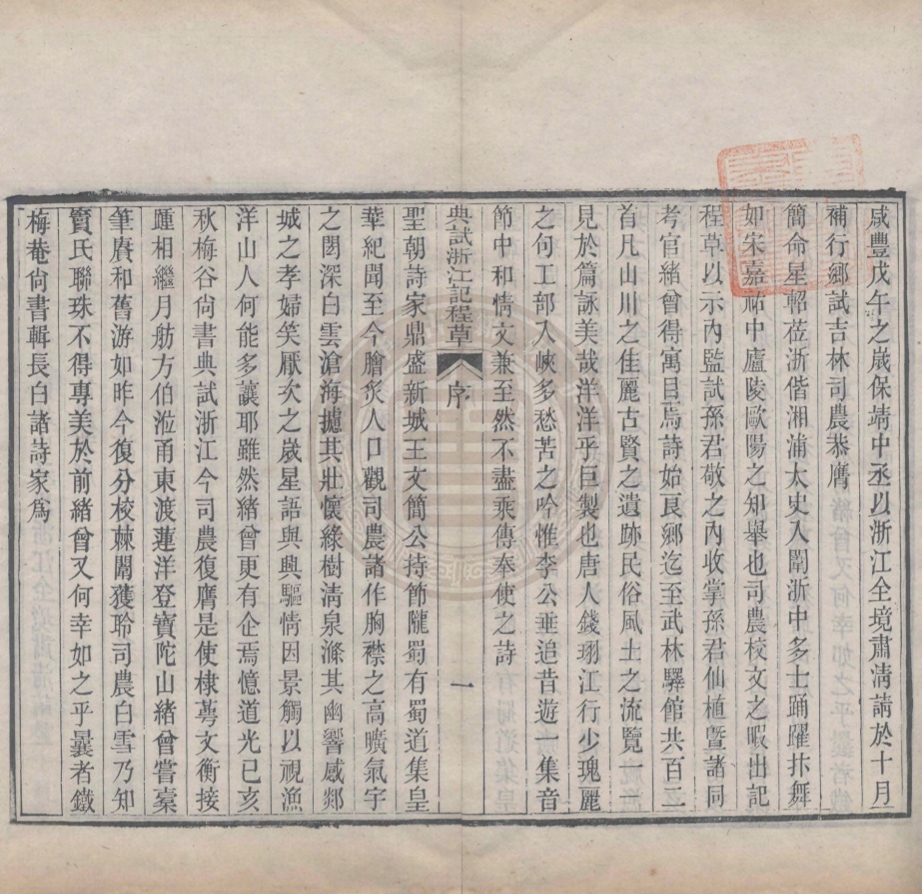 咸豐戊午之歲保靖中丞以浙江全境肅淸請於十月
補行鄉試吉林司農恭膺
簡命星軺莅浙偕湘浦太史入闈浙中多士踊躍抃舞
如宋嘉祐中廬陵歐陽之知舉也司農校文之暇出記
程草以示內監試孫君敬之內收掌孫君仙植暨諸同
考官緒曾得寓目焉詩始良鄉迄至武林驛館共百二
首凡山川之佳麗古賢之遺跡民俗風土之流覽一一
見於篇詠美哉洋洋乎巨製也唐人錢珝江行少瑰麗
之句工部入峽多愁苦之吟惟李公垂追昔遊一集音
節中和情文兼至然不盡乘傳奉使之詩
典試浙江記程草 序 一
聖朝詩家鼎盛新城王文簡公持節隴蜀有蜀道集皇
華紀聞至今膾炙人口觀司農諸作胸襟之高曠氣宇
之閎深白雲滄海攄其壯懷綠樹淸泉滌其幽響感郯
城之孝婦笑厭次之歲星語與興驅情因景觸以視漁
洋山人何能多讓耶雖然緒曾更有企焉憶道光己亥
秋梅谷尙書典試浙江今司農復膺是使棣萼文衡接
踵相繼月舫方伯涖甬東渡蓮洋登寶陀山緒曾嘗橐
筆賡和舊游如昨今復分校棘闈獲聆司農白雪乃知
竇氏聯珠不得專美於前緒曾又何幸如之乎曩者鐵
梅菴尙書輯長白諸詩家爲